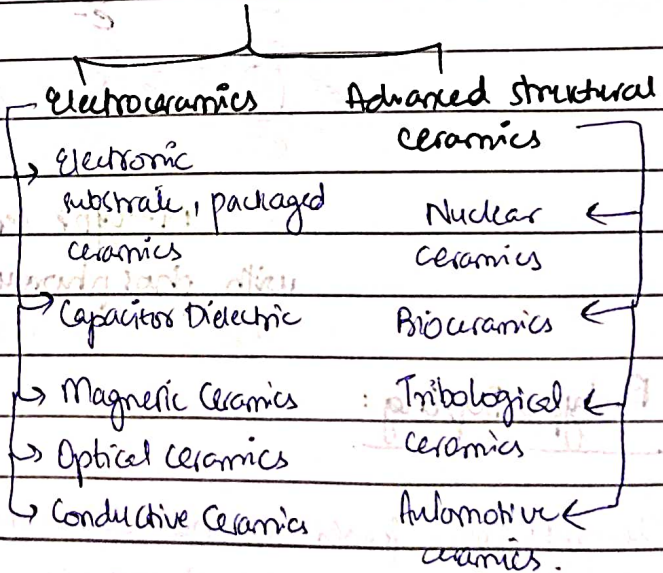 Electroceramics
Electronic
substrate, packaged
ceramics
Capacitor Dielectric
Magnetic Ceramics
Optical Ceramics
Conductive Ceramics
Advanced structural
ceramics
Nuclear
ceramics
Bioceramics
Tribological
ceramics
Automotive
ceramics.